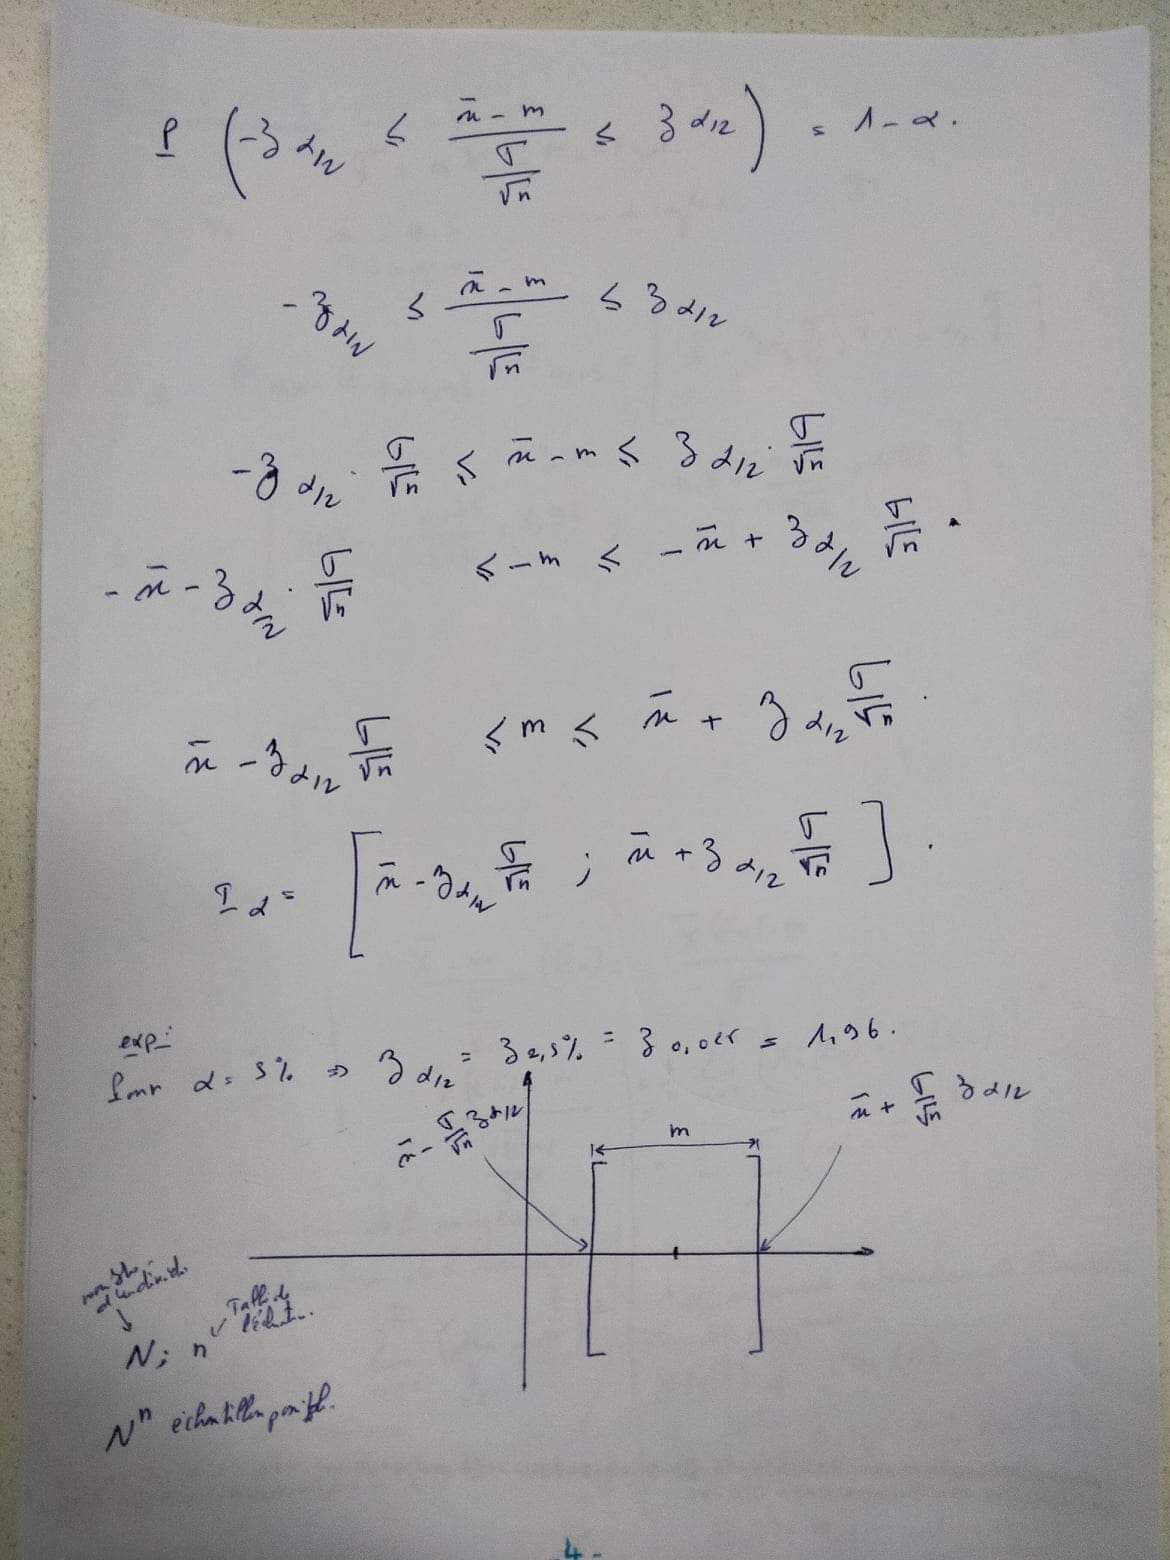 P ( -z α/2 ≤ (x̄ - m) / (σ/√n) ≤ z α/2 ) = 1 - α.
-z α/2 ≤ (x̄ - m) / (σ/√n) ≤ z α/2
-z α/2 . σ/√n ≤ x̄ - m ≤ z α/2 . σ/√n
- x̄ - z α/2 . σ/√n ≤ -m ≤ - x̄ + z α/2 σ/√n .
x̄ - z α/2 σ/√n ≤ m ≤ x̄ + z α/2 σ/√n .
I α = [ x̄ - z α/2 σ/√n ; x̄ + z α/2 σ/√n ] .
exp:
Pour α = 5% => z α/2 = z 2,5% = z 0,025 = 1,96.
x̄ - σ/√n z α/2
x̄ + σ/√n z α/2
m
d'individu
Taille de
l'échant..
N; n
Nⁿ échantillon possibl.
- 4 -